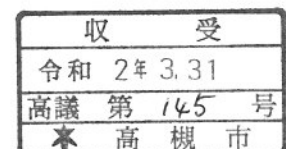 収受
令和 2年 3.31
高議 第 145 号
★ 高槻市